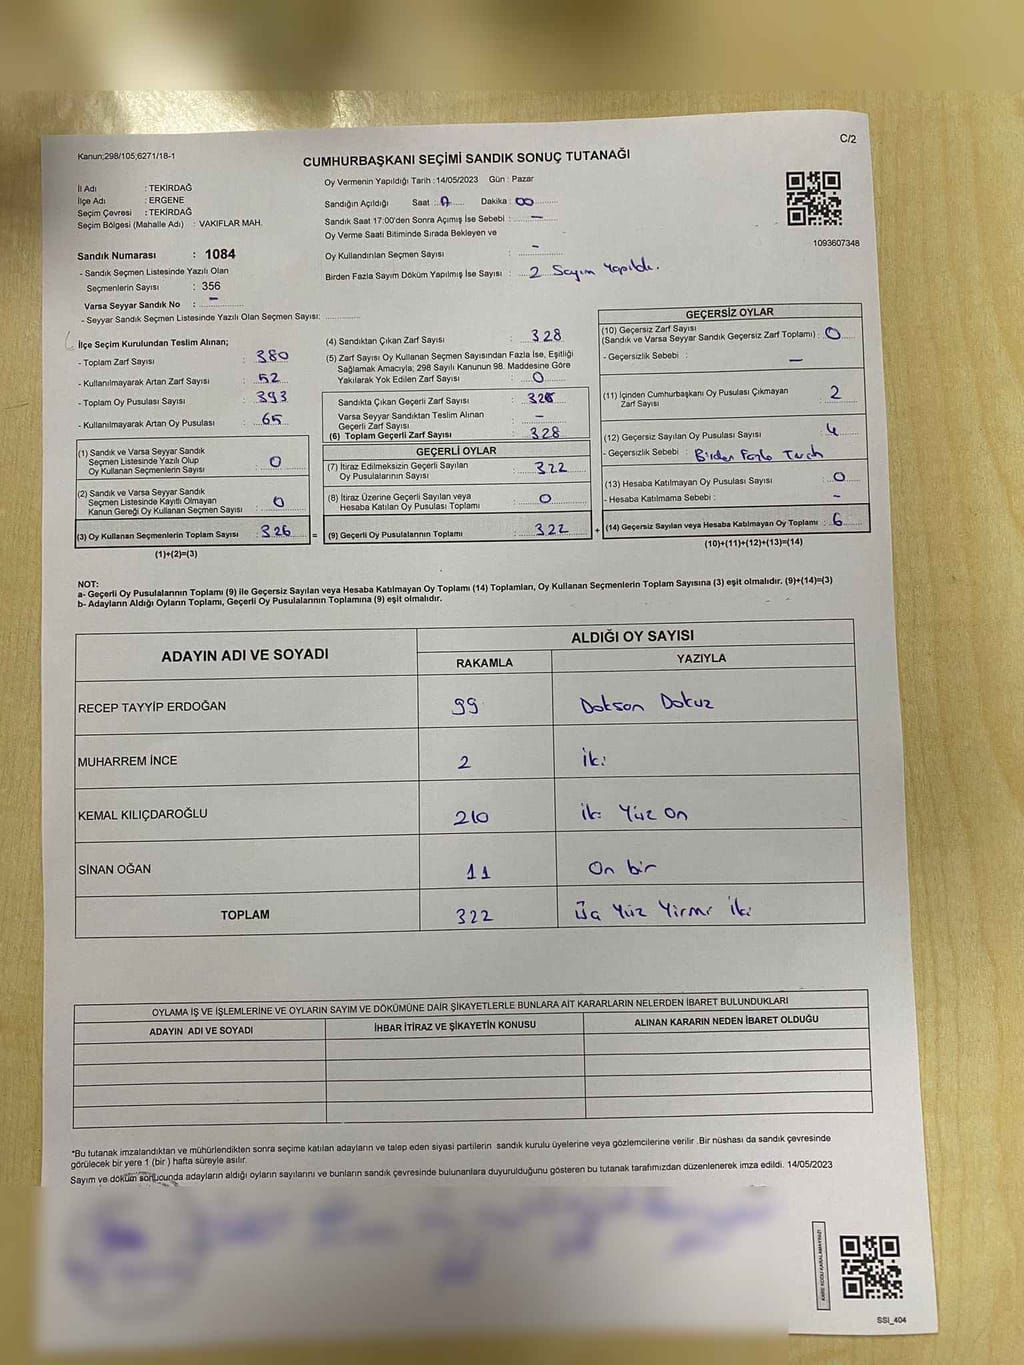 Kanun;298/105;6271/18-1
C/2
CUMHURBAŞKANI SEÇİMİ SANDIK SONUÇ TUTANAĞI
İl Adı : TEKİRDAĞ
İlçe Adı : ERGENE
Seçim Çevresi : TEKİRDAĞ
Seçim Bölgesi (Mahalle Adı) : VAKIFLAR MAH.
Sandık Numarası : 1084
- Sandık Seçmen Listesinde Yazılı Olan
Seçmenlerin Sayısı : 356
Varsa Seyyar Sandık No : –
- Seyyar Sandık Seçmen Listesinde Yazılı Olan Seçmen Sayısı:
Oy Vermenin Yapıldığı Tarih : 14/05/2023 Gün : Pazar
Sandığın Açıldığı Saat : Dakika : 00
Sandık Saat 17:00'den Sonra Açımış İse Sebebi : –
Oy Verme Saati Bitiminde Sırada Bekleyen ve
Oy Kullandırılan Seçmen Sayısı : –
Birden Fazla Sayım Döküm Yapılmış İse Sayısı : 2 Sayım Yapıldı.
1093607348
İlçe Seçim Kurulundan Teslim Alınan;
- Toplam Zarf Sayısı : 380
- Kullanılmayarak Artan Zarf Sayısı : 52
- Toplam Oy Pusulası Sayısı : 393
- Kullanılmayarak Artan Oy Pusulası : 65
(1) Sandık ve Varsa Seyyar Sandık
Seçmen Listesinde Yazılı Olup
Oy Kullanan Seçmenlerin Sayısı : 0
(2) Sandık ve Varsa Seyyar Sandık
Seçmen Listesinde Kayıtlı Olmayan
Kanun Gereği Oy Kullanan Seçmen Sayısı : 0
(3) Oy Kullanan Seçmenlerin Toplam Sayısı : 326 =
(1)+(2)=(3)
(4) Sandıktan Çıkan Zarf Sayısı : 328
(5) Zarf Sayısı Oy Kullanan Seçmen Sayısından Fazla İse, Eşitliği
Sağlamak Amacıyla; 298 Sayılı Kanunun 98. Maddesine Göre
Yakılarak Yok Edilen Zarf Sayısı : 0
Sandıkta Çıkan Geçerli Zarf Sayısı : 328
Varsa Seyyar Sandıktan Teslim Alınan
Geçerli Zarf Sayısı : –
(6) Toplam Geçerli Zarf Sayısı : 328
GEÇERLİ OYLAR
(7) İtiraz Edilmeksizin Geçerli Sayılan
Oy Pusulasının Sayısı : 322
(8) İtiraz Üzerine Geçerli Sayılan veya
Hesaba Katılan Oy Pusulası Toplamı : 0
(9) Geçerli Oy Pusulalarının Toplamı : 322 +
GEÇERSİZ OYLAR
(10) Geçersiz Zarf Sayısı
(Sandık ve Varsa Seyyar Sandık Geçersiz Zarf Toplamı) : 0
- Geçersizlik Sebebi : –
(11) İçinden Cumhurbaşkanı Oy Pusulası Çıkmayan
Zarf Sayısı : 2
(12) Geçersiz Sayılan Oy Pusulası Sayısı : 4
- Geçersizlik Sebebi : Birden Fazla
(13) Hesaba Katılmayan Oy Pusulası Sayısı : 0
- Hesaba Katılmama Sebebi : –
(14) Geçersiz Sayılan veya Hesaba Katılmayan Oy Toplamı : 6
(10)+(11)+(12)+(13)=(14)
NOT:
a- Geçerli Oy Pusulalarının Toplamı (9) ile Geçersiz Sayılan veya Hesaba Katılmayan Oy Toplamı (14) Toplamları, Oy Kullanan Seçmenlerin Toplam Sayısına (3) eşit olmalıdır. (9)+(14)=(3)
b- Adayların Aldığı Oyların Toplamı, Geçerli Oy Pusulalarının Toplamına (9) eşit olmalıdır.
ADAYIN ADI VE SOYADI
ALDIĞI OY SAYISI
RAKAMLA YAZIYLA
RECEP TAYYİP ERDOĞAN 99 Dokson Dokuz
MUHARREM İNCE 2 İki
KEMAL KILIÇDAROĞLU 210 İki Yüz On
SİNAN OĞAN 11 On bir
TOPLAM 322 Üç Yüz Yirmi İki
OYLAMA İŞ VE İŞLEMLERİNE VE OYLARIN SAYIM VE DÖKÜMÜNE DAİR ŞİKAYETLERLE BUNLARA AİT KARARLARIN NELERDEN İBARET BULUNDUKLARI
ADAYIN ADI VE SOYADI İHBAR İTİRAZ VE ŞİKAYETİN KONUSU ALINAN KARARIN NEDEN İBARET OLDUĞU
*Bu tutanak imzalandıktan ve mühürlendikten sonra seçime katılan adayların ve talep eden siyasi partilerin sandık kurulu üyelerine veya gözlemcilerine verilir .Bir nüshası da sandık çevresinde
görülecek bir yere 1 (bir) hafta süreyle asılır.
Sayım ve döküm sonucunda adayların aldığı oyların sayılarını ve bunların sandık çevresinde bulunanlara duyurulduğunu gösteren bu tutanak tarafımızdan düzenlenerek imza edildi. 14/05/2023
KARE KODU KARALAMAYINIZ!
SSI_404